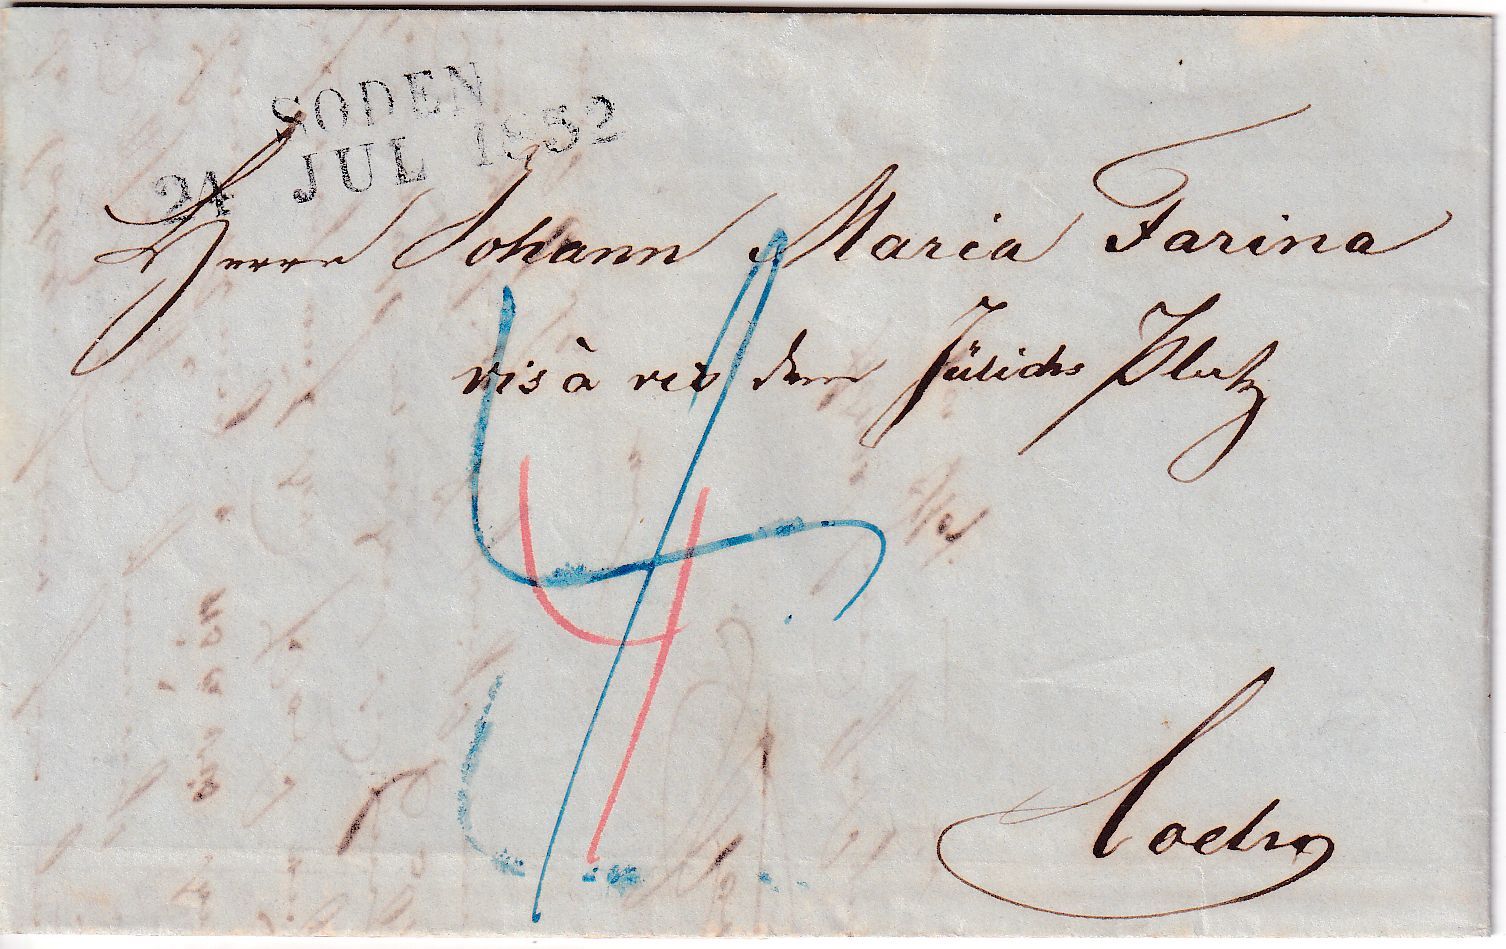 SODEN
21 JUL 1852
Herrn Johann Maria Farina
vis à vis dem Jülichs Platz
Coeln
4
4